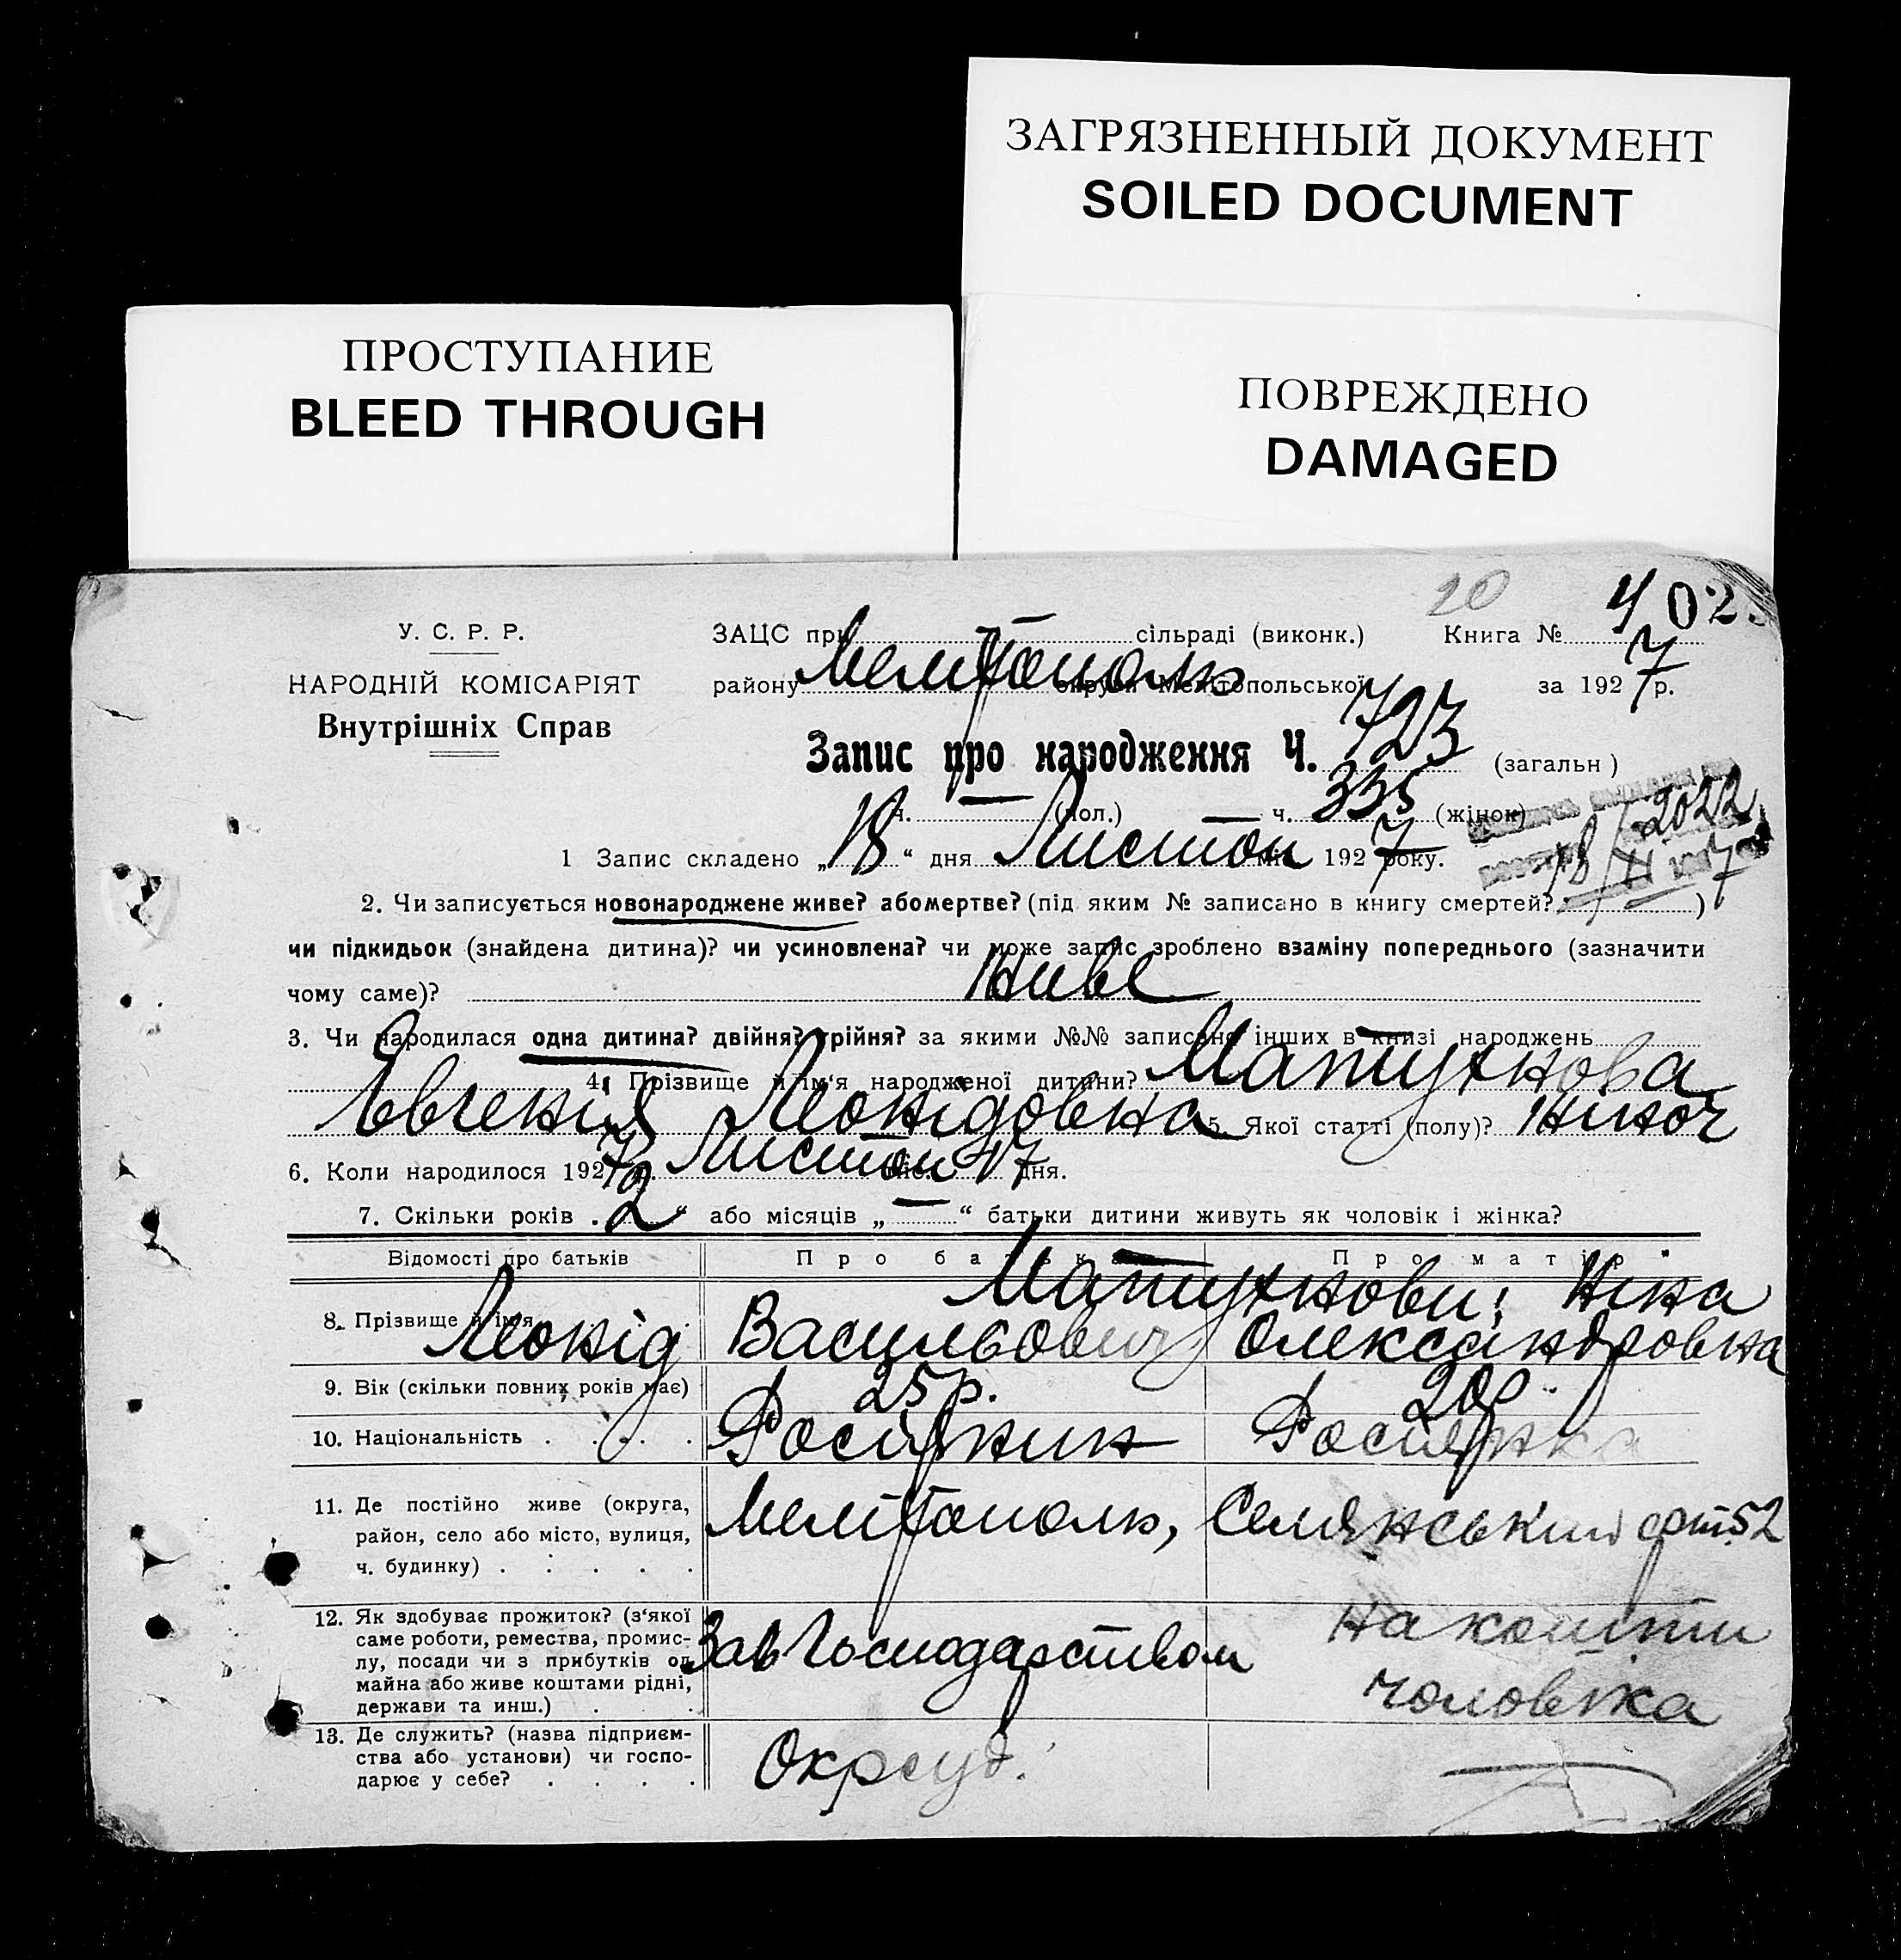 ЗАГРЯЗНЕННЫЙ ДОКУМЕНТ
SOILED DOCUMENT
ПРОСТУПАНИЕ
BLEED THROUGH
ПОВРЕЖДЕНО
DAMAGED
20 4 02
У. С. Р. Р.
НАРОДНІЙ КОМІСАРІЯТ
Внутрішніх Справ
ЗАЦС при — сільраді (виконк.) Книга №
району Мелітополь округи Мелітопольської за 1927 р.
Запис про народження Ч. 723 (загальн)
ч. — (пол.) — ч. 335 (жінок)
2022
18/XI 1927
1 Запис складено „18“ дня Листоп міс. 1927 року.
2. Чи записується новонароджене живе? або мертве? (під яким № записано в книгу смертей? )
чи підкидьок (знайдена дитина)? чи усиновлена? чи може запис зроблено взаміну попереднього (зазначити
чому саме)? Живе
3. Чи народилася одна дитина? двійня? трійня? за якими №№ записано інших в книзі народжень —
4. Прізвище й ім'я народженої дитини? Матухнова
Євгенія Леонідовна 5. Якої статті (полу)? Жіноч
6. Коли народилося 1927 р. Листоп міс. 17 дня.
7. Скільки років „2“ або місяців „—“ батьки дитини живуть як чоловік і жінка?
Відомості про батьків Про батька Про матір
8. Прізвище й ім'я Матухнови: Ніна
Леонід Васильович Олександровна
9. Вік (скільки повних років має) 25 р. 20 р.
10. Національність . . . . Росіянин Росіянка
11. Де постійно живе (округа,
район, село або місто, вулиця,
ч. будинку) . . . . .
Мелітополь, 52
12. Як здобуває прожиток? (з'якої
саме роботи, ремества, промис-
лу, посади чи з прибутків од
майна або живе коштами рідні,
держави та инш.) . . .
Зав Господарством
на кошти
чоловіка
13. Де служить? (назва підприєм-
ства або установи) чи госпо-
дарює у себе? . . . .
Окрсуд. —